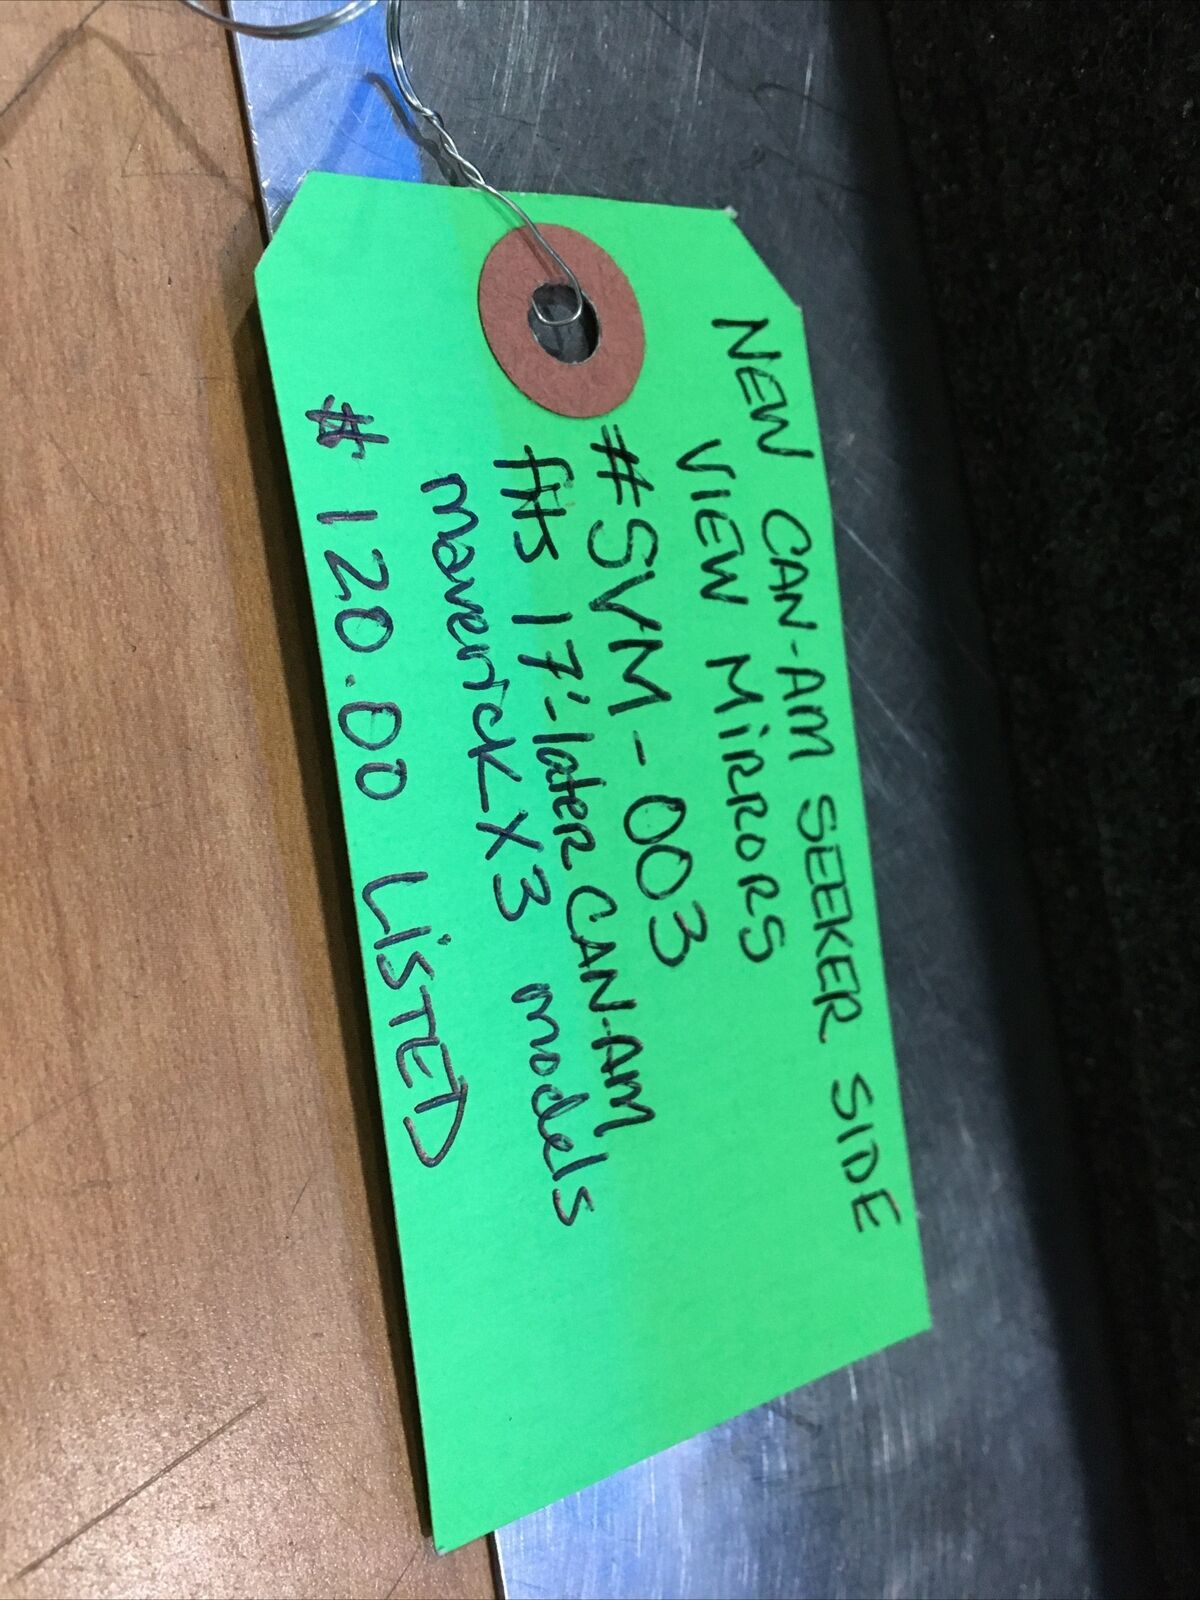 NEW CAN-AM SEEKER SIDE
VIEW MiRRORS
#SVM-003
fits 17'-later CAN-AM
maverick X3 models
$120.00 LiSTED